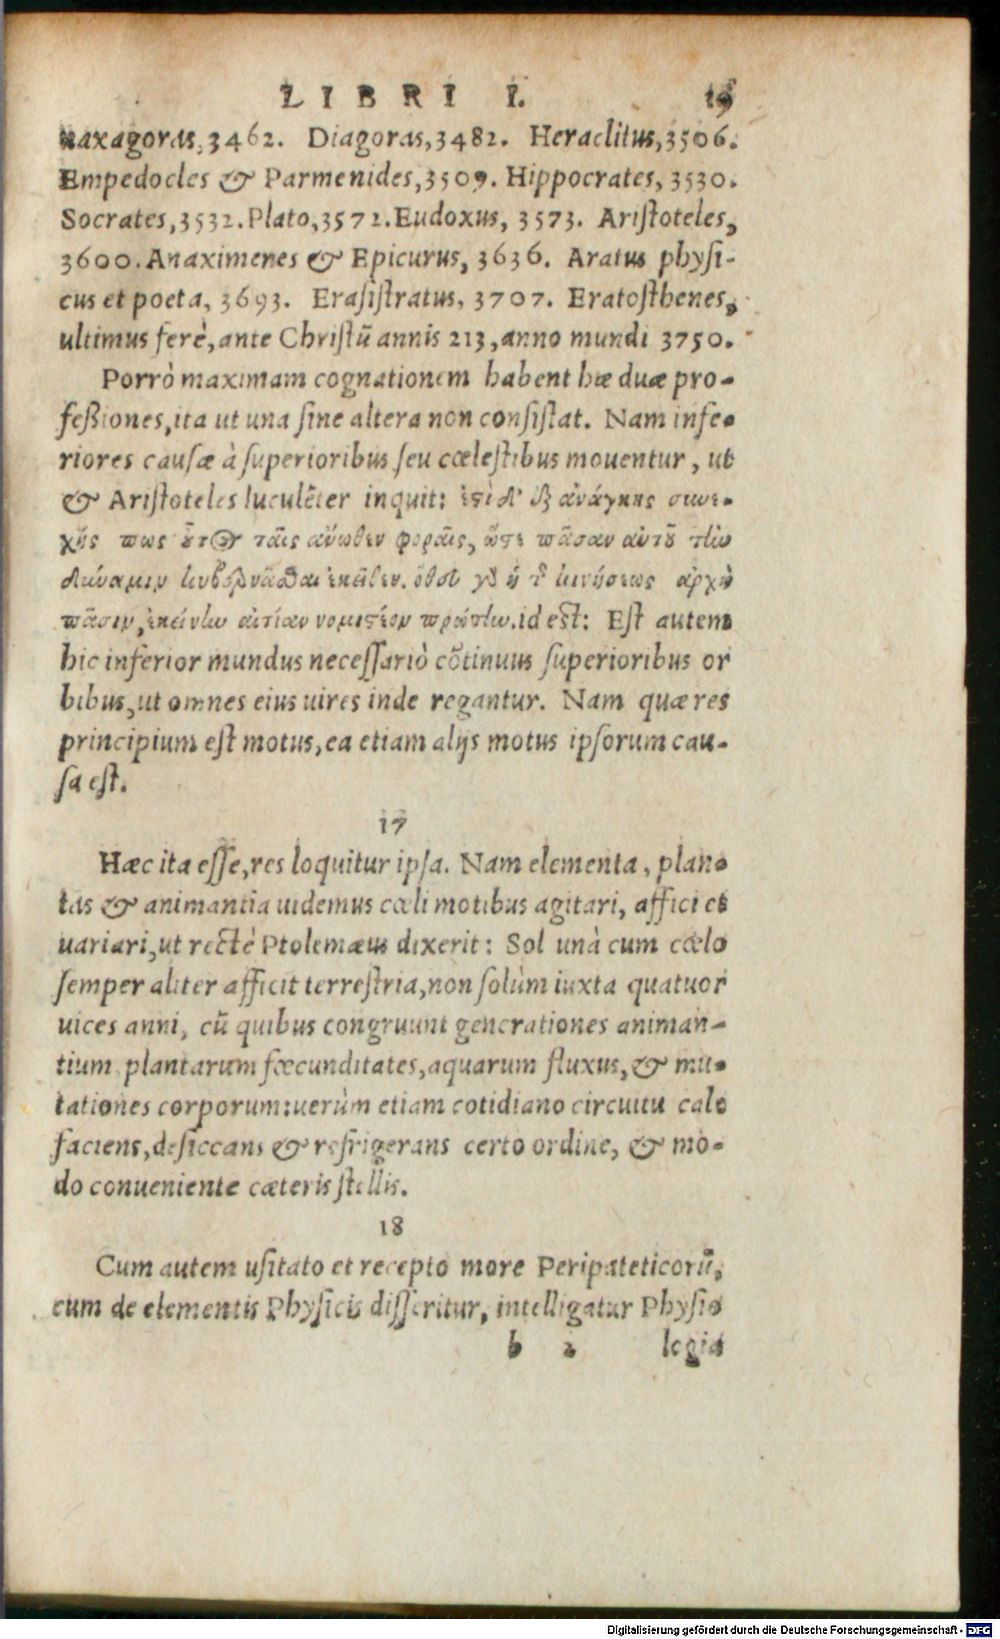 LIBRI I. 19
naxagoras, 3462. Diagoras, 3482. Heraclitus, 3506.
Empedocles & Parmenides, 3509. Hippocrates, 3530.
Socrates, 3532. Plato, 3572. Eudoxus, 3573. Aristoteles,
3600. Anaximenes & Epicurus, 3636. Aratus physi-
cus et poeta, 3693. Erasistratus, 3707. Eratosthenes,
ultimus ferè, ante Christū annis 213, anno mundi 3750.
Porrò maximam cognationem habent hæ duæ pro-
feßiones, ita ut una sine altera non consistat. Nam infe-
riores causæ à superioribus seu cœlestibus mouentur, ut
& Aristoteles luculēter inquit: ἐστὶ δ' ἐξ ἀνάγκης συνε-
χής πως οὗτος ταῖς ἄνωθεν φοραῖς, ὥστε πᾶσαν αὐτοῦ τὴν
δύναμιν κυβερνᾶσθαι ἐκεῖθεν. ὅθεν γὰρ ἡ τῆς κινήσεως ἀρχὴ
πᾶσιν, ἐκείνην αἰτίαν νομιστέον πρώτην. id est: Est autem
hic inferior mundus necessariò cōtinuus superioribus or
bibus, ut omnes eius uires inde regantur. Nam quæ res
principium est motus, ea etiam alijs motus ipsorum cau-
sa est.
17
Hæc ita esse, res loquitur ipsa. Nam elementa, plan-
tas & animantia uidemus cœli motibus agitari, affici et
uariari, ut rectè Ptolemæus dixerit: Sol unà cum cœlo
semper aliter afficit terrestria, non solùm iuxta quatuor
uices anni, cū quibus congruunt generationes animan-
tium plantarum fœcunditates, aquarum fluxus, & mu-
tationes corporum: uerùm etiam cotidiano circuitu cale
faciens, desiccans & refrigerans certo ordine, & mo-
do conueniente cæteris stellis.
18
Cum autem usitato et recepto more Peripateticorū,
cum de elementis Physicis disseritur, intelligatur Physio
b 2 logia
Digitalisierung gefördert durch die Deutsche Forschungsgemeinschaft - DFG